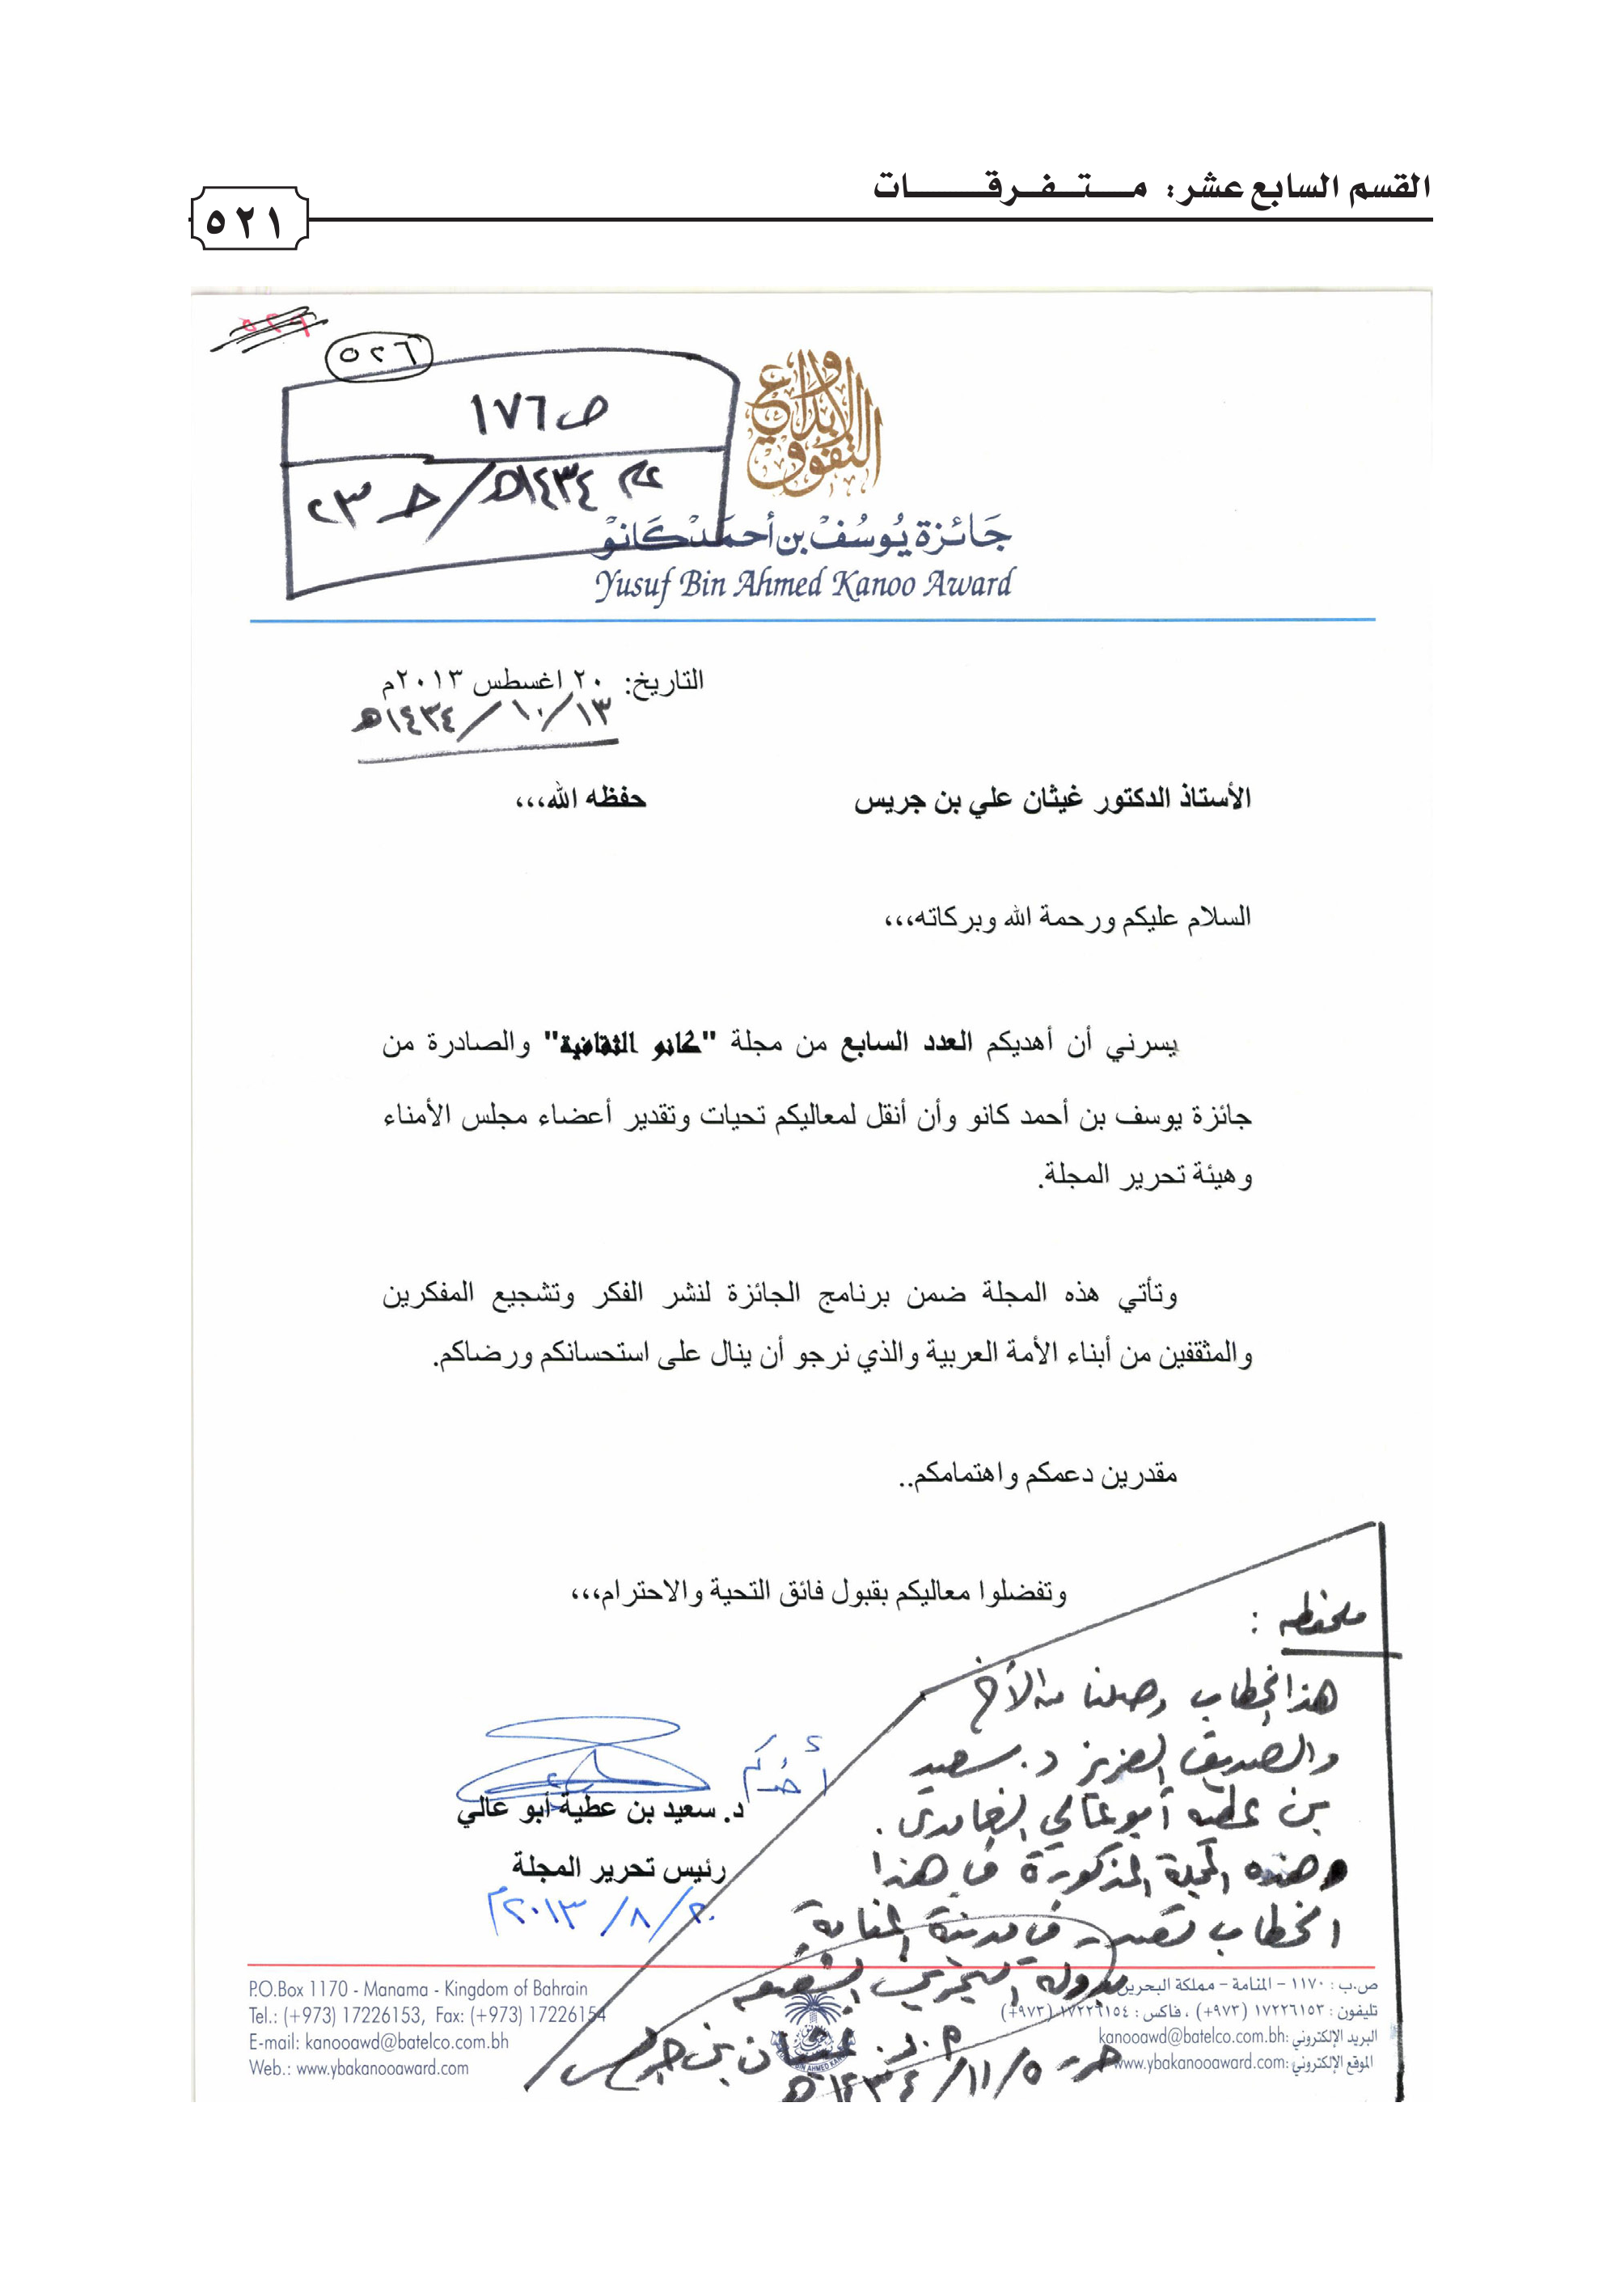 القسم السابع عشر: متفرقات
٥٢١
٥٢٦
ص ١٧٦
عام ١٤٣٤هـ / حـ ٢٣
الإبداع والتفوق
جائزة يوسف بن أحمد كانو
Yusuf Bin Ahmed Kanoo Award
التاريخ: ٢٠ اغسطس ٢٠١٣م
١٣/١٠/١٤٣٤هـ
الأستاذ الدكتور غيثان علي بن جريس حفظه الله،،،
السلام عليكم ورحمة الله وبركاته،،،
يسرني أن أهديكم العدد السابع من مجلة "كانو الثقافية" والصادرة من
جائزة يوسف بن أحمد كانو وأن أنقل لمعاليكم تحيات وتقدير أعضاء مجلس الأمناء
وهيئة تحرير المجلة.
وتأتي هذه المجلة ضمن برنامج الجائزة لنشر الفكر وتشجيع المفكرين
والمثقفين من أبناء الأمة العربية والذي نرجو أن ينال على استحسانكم ورضاكم.
مقدرين دعمكم واهتمامكم..
وتفضلوا معاليكم بقبول فائق التحية والاحترام،،،
أخوكم
د. سعيد بن عطية أبو عالي
رئيس تحرير المجلة
٢٠/٨/٢٠١٣م
ملحظه :
هذا الخطاب وصلنا من الأخ
والصديق العزيز د. سعيد
بن عطيه أبو عالي الغامدي.
وهذه المجلة المذكورة في هذا
الخطاب تصدر في مدينة المنامة
بدولة البحرين الشقيقه
أ.د. غيثان بن جريس
حرر ٥/١١/١٤٣٤هـ
P.O.Box 1170 - Manama - Kingdom of Bahrain
Tel.: (+973) 17226153, Fax: (+973) 17226154
E-mail: kanooawd@batelco.com.bh
Web.: www.ybakanooaward.com
ص.ب : ١١٧٠ - المنامة - مملكة البحرين
تليفون : ١٧٢٢٦١٥٣ (٩٧٣+) ، فاكس : ١٧٢٢٦١٥٤ (٩٧٣+)
البريد الإلكتروني: kanooawd@batelco.com.bh
الموقع الإلكتروني: www.ybakanooaward.com